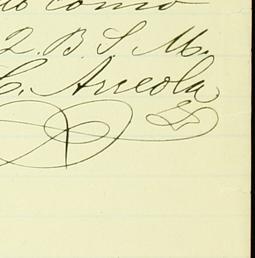 como
Q. B. S. M.
C. Arreola